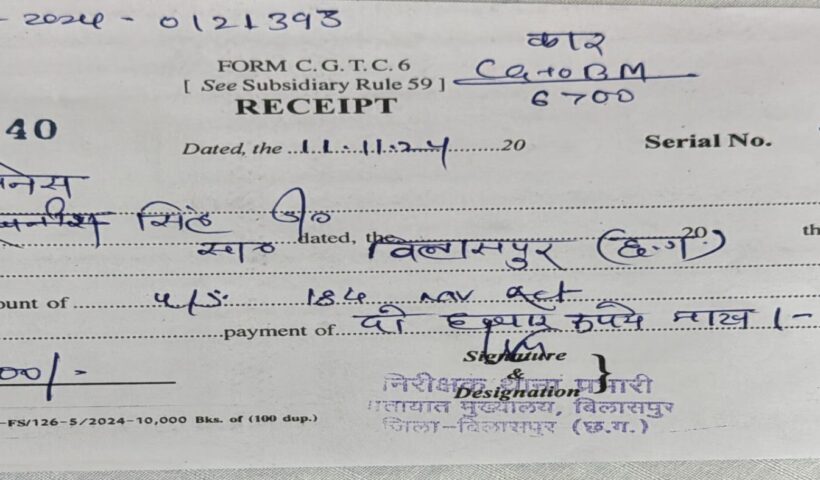 - 2024 - 0121393
कार
FORM C.G.T.C. 6
[ See Subsidiary Rule 59 ]
CG10BM
6700
RECEIPT
40
Dated, the ...11.11.24...20
Serial No.
सिंह
dated, the
20
th
बिलासपुर (छ.ग.)
ount of ... u/s. 184 mv act
payment of... दो हजार रुपये मात्र /-
00/-
Signature
&
Designation }
निरीक्षक थाना प्रभारी
यातायात मुख्यालय, बिलासपुर
जिला-बिलासपुर (छ.ग.)
-FS/126-5/2024-10,000 Bks. of (100 dup.)